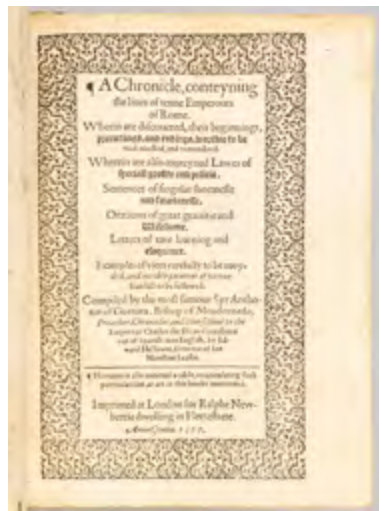 ¶ A Chronicle, conteyning
the liues of tenne Emperours
of Rome.
Wherin are discouered, their beginnings,
proceedings, and endings, worthie to be
read, marked, and remembred.
Wherein are also conteyned Lawes of
speciall profite and policie.
Sentences of singular shortnesse
and sweetenesse.
Orations of great grauitie and
Wisedome.
Letters of rare learning and
eloquence.
Examples of vices carefully to be auoy-
ded, and notable paternes of vertue
fruitfull to be followed.
Compiled by the most famous Syr Anthonie
of Gueuara, Bishop of Mondonnedo,
Preacher, Chronicler, and counsellour to the
Emperour Charles the fift: and translated
out of Spanish into English, by Ed-
ward Hellowes, Groome of hir
Maiesties Leashe.
¶ Hereunto is also annexed a table, recapitulating such
particularities as are in this booke mentioned.
Imprinted at London for Ralphe New-
berrie dwelling in Fleetestrete.
Anno Gratiæ 1577.